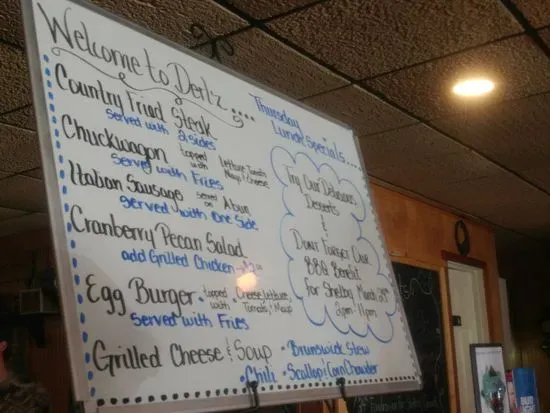 Welcome to Derlz....
Thursday
Lunch Specials....
Country Fried Steak
Served with 2 sides
Chuckwagon topped with Lettuce, Tomato, Mayo & Cheese
Served with Fries
Italian Sausage served on A bun
Served with One Side
Cranberry Pecan Salad
add Grilled Chicken
Egg Burger topped with Cheese, Lettuce, Tomato, & Mayo
Served with Fries
Grilled Cheese & Soup • Brunswick Stew
Chili • Scallop & Corn Chowder
Try Our Delicious
Desserts
&
Don't Forget Our
BBQ Benefit
for Shelby March
2pm - 11pm